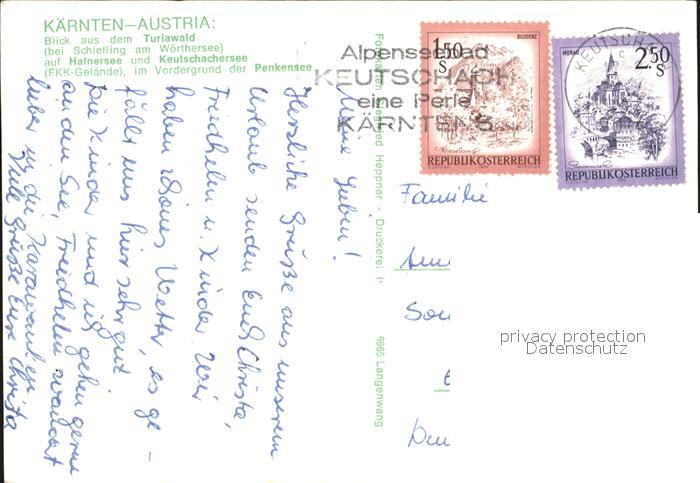 KÄRNTEN—AUSTRIA:
Blick aus dem Turiawald
(bei Schiefling am Wörthersee)
auf Hafnersee und Keutschachersee
(FKK-Gelände), im Vordergrund der Penkensee
Meine Lieben!
Herzliche Grüße aus unserem
Urlaub senden Euch Christa,
Friedhelm u. Kinder. Wir
haben schönes Wetter, es ge-
fällt uns hier sehr gut.
Die Kinder und ich gehen gerne
an den See, Friedhelm wandert
lieber in den Karawanken.
Viele Grüße Eure Christa
Siegfried Heppner - Druckerei
8665 Langenwang
Alpenseebad
KEUTSCHACH
eine Perle
KÄRNTENS
1.50
S
BLUDENZ
REPUBLIK ÖSTERREICH
KEUTSCHACH
MURAU
2.50
S
REPUBLIK ÖSTERREICH
Familie
privacy protection
Datenschutz